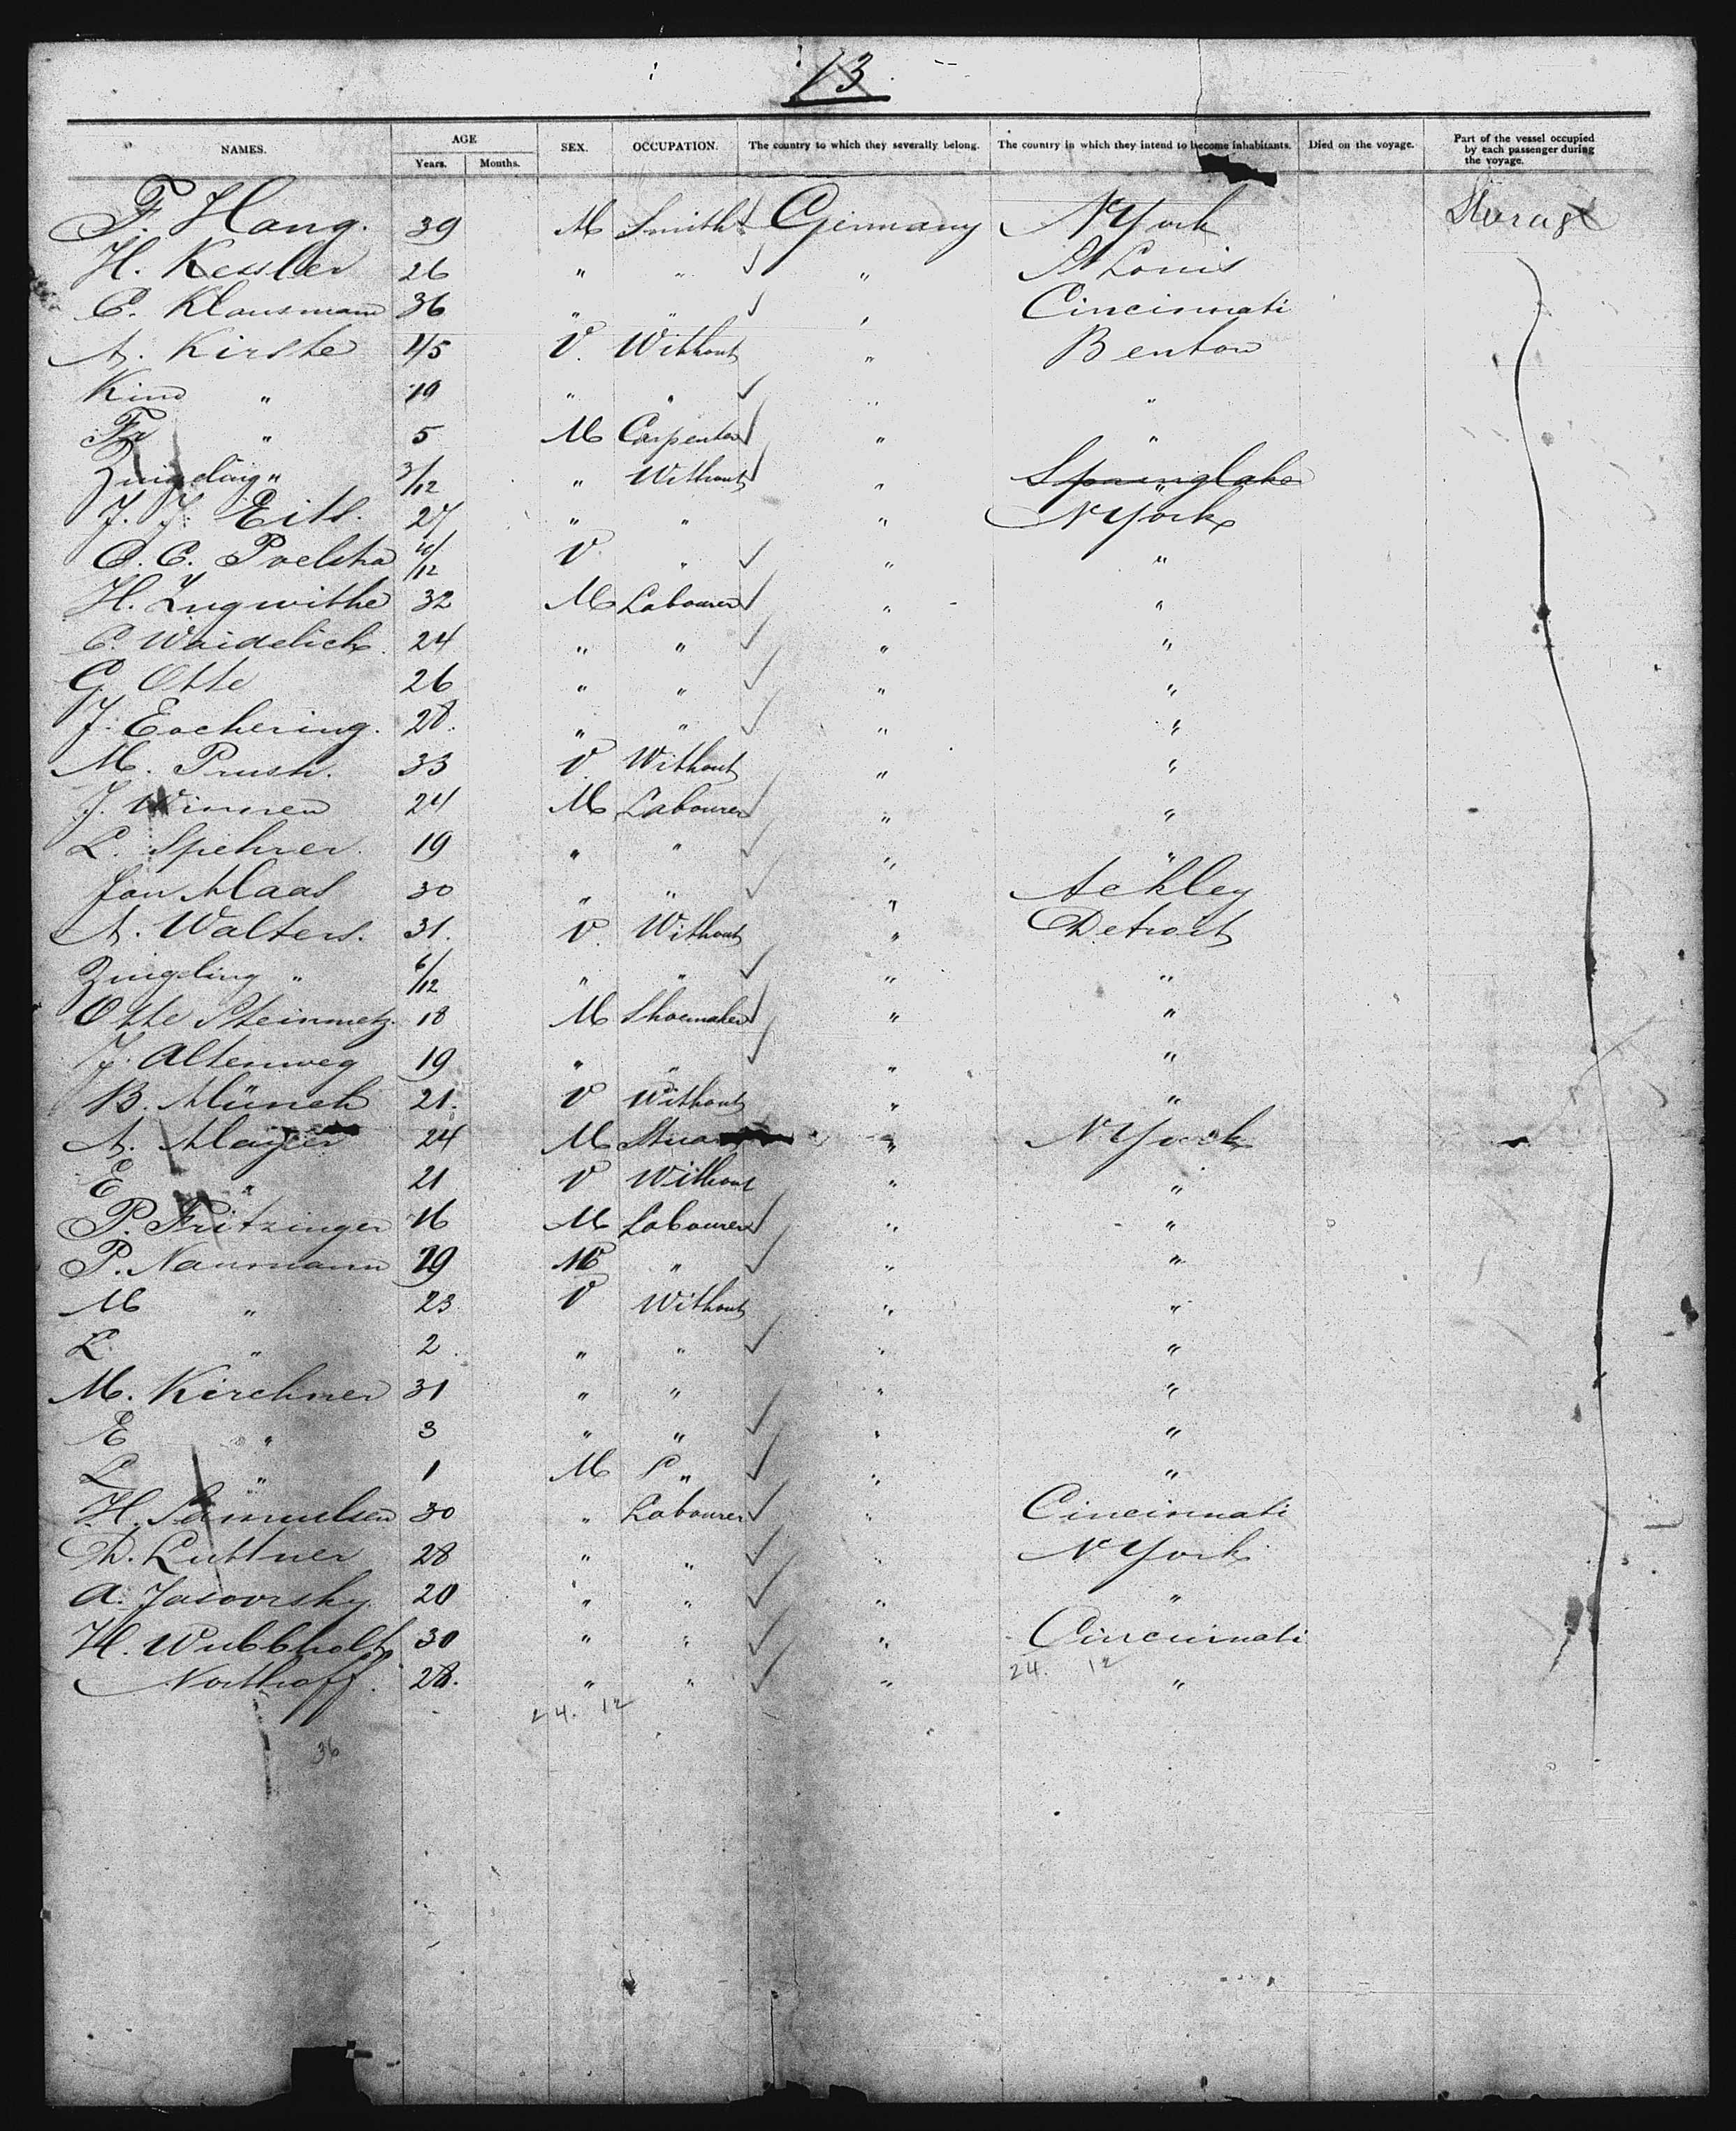 13
NAMES. AGE Years. Months. SEX. OCCUPATION. The country to which they severally belong. The country in which they intend to become inhabitants. Died on the voyage. Part of the vessel occupied by each passenger during the voyage.
F. Hang. 39 M Smith Germany N York
H. Kessler 26 " " " St Louis
C. Klausmann 36 " " " Cincinnati
A. Kirste 45 V. Without " Benton
Kind " " " " "
" 5 M Carpenter " "
" 3/12 " Without " "
J. J. Eits. 27 " " " N York
C. C. Poelstra 10/12 V " " "
H. Ingwithe 32 M Labourer " "
C. Waidelich. 24 " " " "
G Otte 26 " " " "
J. Eochering. 28. " " " "
M. 33 V. Without " "
J. Winnen 24 M Labourer " "
L. Spehrer. 19 " " " "
Jan Maas 30 " " " Ackley
A. Walters. 31. V. Without " Detroit
" 6/12 " " " "
Otte Steinmetz. 18 M Shoemaker " "
J. Altenweg 19 " " " "
B. Münch 21. V Without " "
A. Mayer 24 M " N York
E " 21 V Without " "
P. Fritzinger 16 M Labourer " "
P. Naumann 29 M " " "
M " 23 V Without " "
L. " 2 " " " "
M. Kirchner 31 " " " "
E " 3 " " " "
L " 1 M " " "
H. Samuelsen 30 " Labourer " Cincinnati
D. Luttner 28 " " " N York
A. Jasovrsky. 20 " " " "
H. Wubbholt 30 " " " Cincinnati
24. 12
Northoff. 28. " " " "
24. 12
36